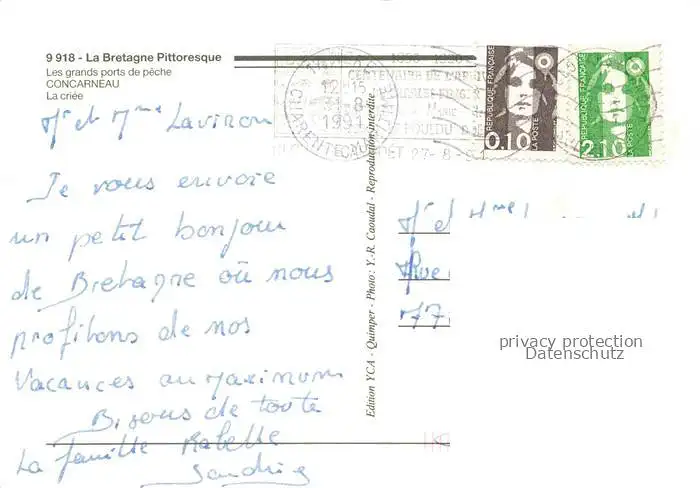 9 918 - La Bretagne Pittoresque
Les grands ports de pêche
CONCARNEAU
La criée
Mr et Mme Laviron
Je vous envoie
un petit bonjour
de Bretagne où nous
profitons de nos
Vacances au maximum
Bisous de toute
La famille Rabelle
Sandrine
Edition YCA - Quimper - Photo: Y.-R. Caoudal - Reproduction interdite
12-15
1991
CENTENAIRE DE
POULDU
27-8
REPUBLIQUE FRANÇAISE
0,10
LA POSTE
REPUBLIQUE FRANÇAISE
2,10
LA POSTE
Mr et Mme
Rue
77
privacy protection
Datenschutz